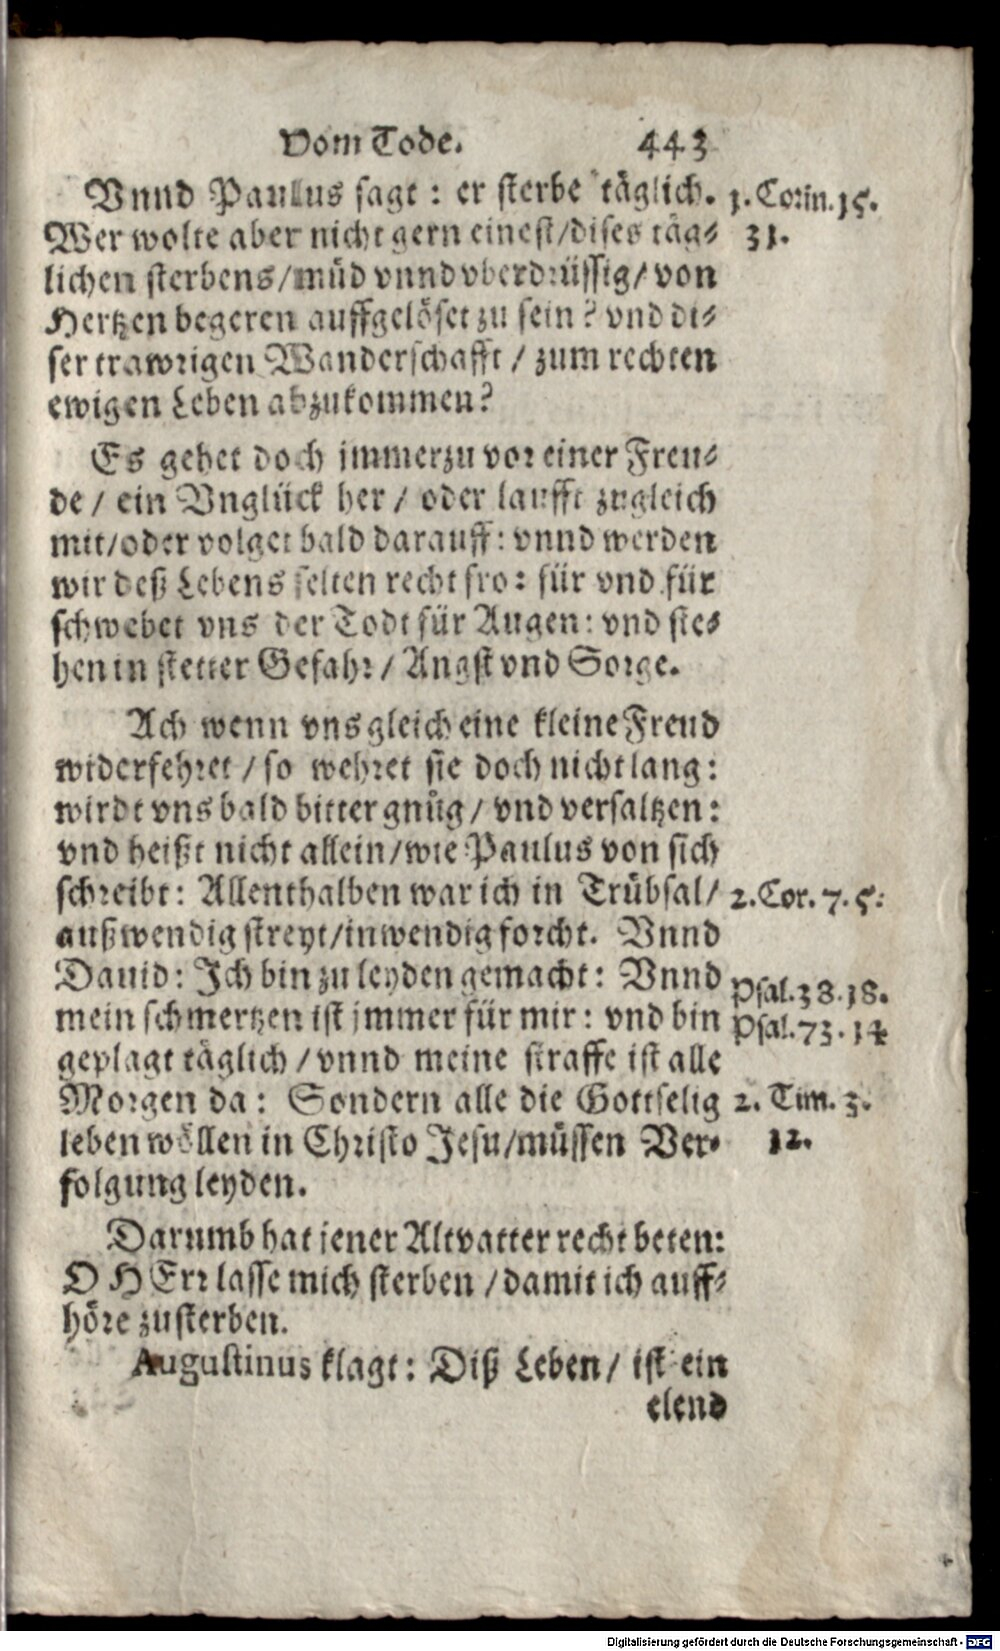 Vom Tode. 443
Vnnd Paulus sagt: er sterbe täglich. 1. Corin. 15.
Wer wolte aber nicht gern einest/dises täg- 31.
lichen sterbens/müd vnnd vberdrüssig/von
Hertzen begeren auffgelöset zu sein? vnd di-
ser trawrigen Wanderschafft/zum rechten
ewigen Leben abzukommen?
Es gehet doch jmmerzu vor einer Freu-
de/ein Vnglück her/oder laufft zugleich
mit/oder volget bald darauff: vnnd werden
wir deß Lebens selten recht fro: für vnd für
schwebet vns der Todt für Augen: vnd ste-
hen in stetter Gefahr/Angst vnd Sorge.
Ach wenn vns gleich eine kleine Freud
widerfehret/so wehret sie doch nicht lang:
wirdt vns bald bitter gnůg/vnd versaltzen:
vnd heißt nicht allein/wie Paulus von sich
schreibt: Allenthalben war ich in Trůbsal/ 2. Cor. 7. 5.
außwendig streyt/inwendig forcht. Vnnd
Dauid: Ich bin zu leyden gemacht: Vnnd Psal. 38. 18.
mein schmertzen ist jmmer für mir: vnd bin Psal. 73. 14
geplagt täglich/vnnd meine straffe ist alle
Morgen da: Sondern alle die Gottselig 2. Tim. 3.
leben wöllen in Christo Jesu/můssen Ver- 12.
folgung leyden.
Darumb hat jener Altvatter recht beten:
O HErr lasse mich sterben/damit ich auff-
höre zusterben.
Augustinus klagt: Diß Leben/ist ein
elend
Digitalisierung gefördert durch die Deutsche Forschungsgemeinschaft - DFG